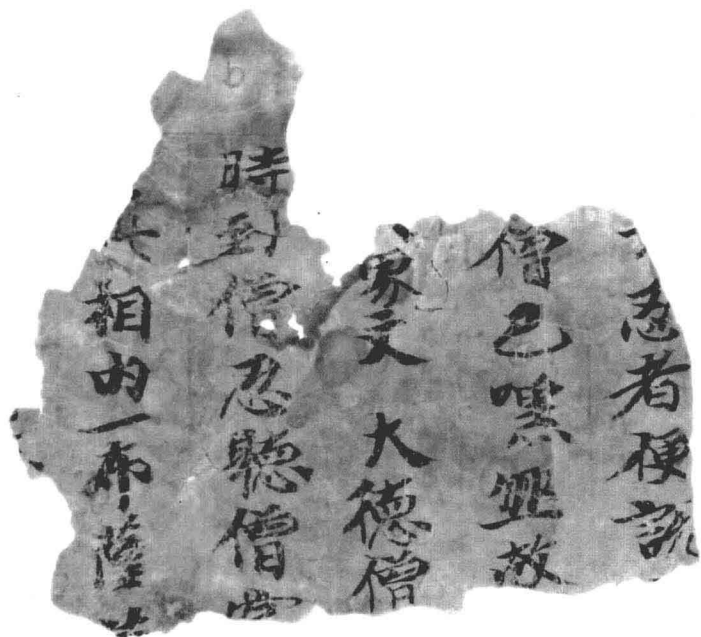 忍者便說
僧已嘿故
文 大德僧
時到僧忍聽僧
相內一布薩